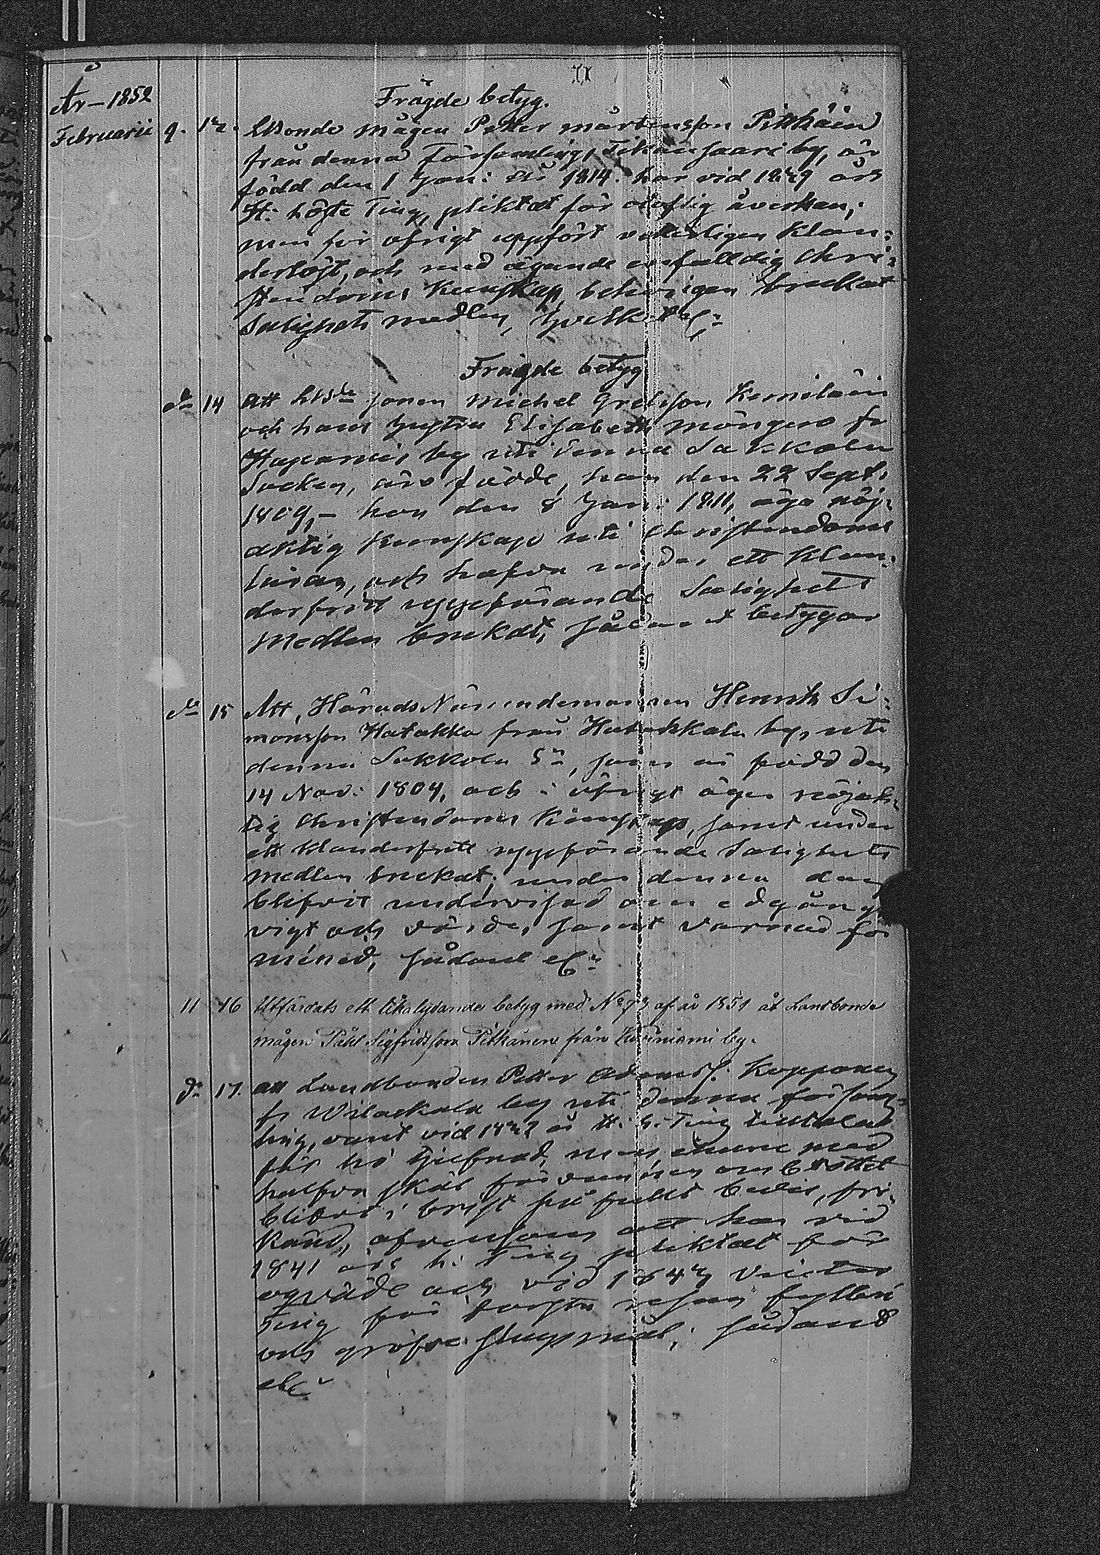 År 1852
Frägde betyg.
Februarii 9. 12. Bonde mågen Petter Mårtensson Pitkäin
från denna Församling, Tikansaari by, är
född den 1 Jan: år 1814. har vid 1849 års
H: höste Ting, pliktat för oloflig åverkan;
men för öfrigt uppfört sig Klan-
derlöst, och med ägande enfaldig Chri-
stendoms Kunskap, behörigen brukat
Salighets medlen, hvilket etc:
Frägde betyg
do 14 Att sonen Michel Kemiläin
och hans hustru Elisabeth fr
Haparais by uti denna Sakkola
Socken, äro födde, han den 22 Sept:
1809, – hon den 8 Jan: 1811, äga nöj-
aktig Kunskap uti Christendoms
läran, och hafva under ett klan-
derfritt uppförande Salighets
Medlen brukat, sådant betygar
do 15 Att, Härads Nämndemannen Henrik Si-
monsson Hatakka från Hatakkala by, uti
denna Sakkola Sn, som är född den
14 Nov: 1804, och i öfrigt äger nöjak-
tig Christendoms Kunskap, samt under
ett klanderfritt uppförande Salighets
medlen brukat, under denna dag
blifvit undervisad om edgångs
vigt och värde, samt varnad för
mened, sådant etc:
11 16 Utfärdats ett likalydande betyg med No 73 af år 1851 åt Landbonde
mågen Påhl Sigfridsson Pitkänen från Kiviniemi by.
do 17. att Landbonden Petter Adamss. Kopponen
fr Wilakkala by uti denna försam-
ling, varit vid 1842 års H: H: Ting tilltalad
för tjufnad, men ehuru med
halfva skäl om brottet
blifvit i brist på fullt bevis, fri-
känd, äfvensom att han vid
1841 års h: Ting pliktat för
oqväde och vid 1843 Vinter
Ting för första resan fylleri
och gröfre slagsmål; sådant
etc